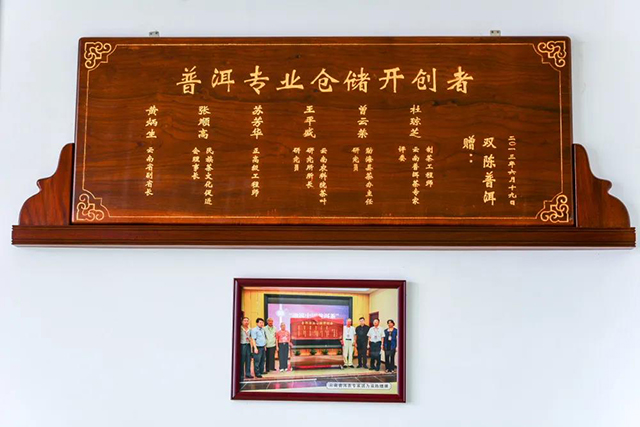 普洱专业仓储开创者
二〇一三年六月十九日
双陈普洱
赠：
杜琼芝
制茶工程师
云南普洱茶专家
评委
曾云荣
勐海县茶办主任
研究员
王平盛
云南省农科院茶叶
研究所所长
研究员
苏芳华
正高级工程师
张顺高
民族茶文化促进
会理事长
黄炳生
云南省副省长